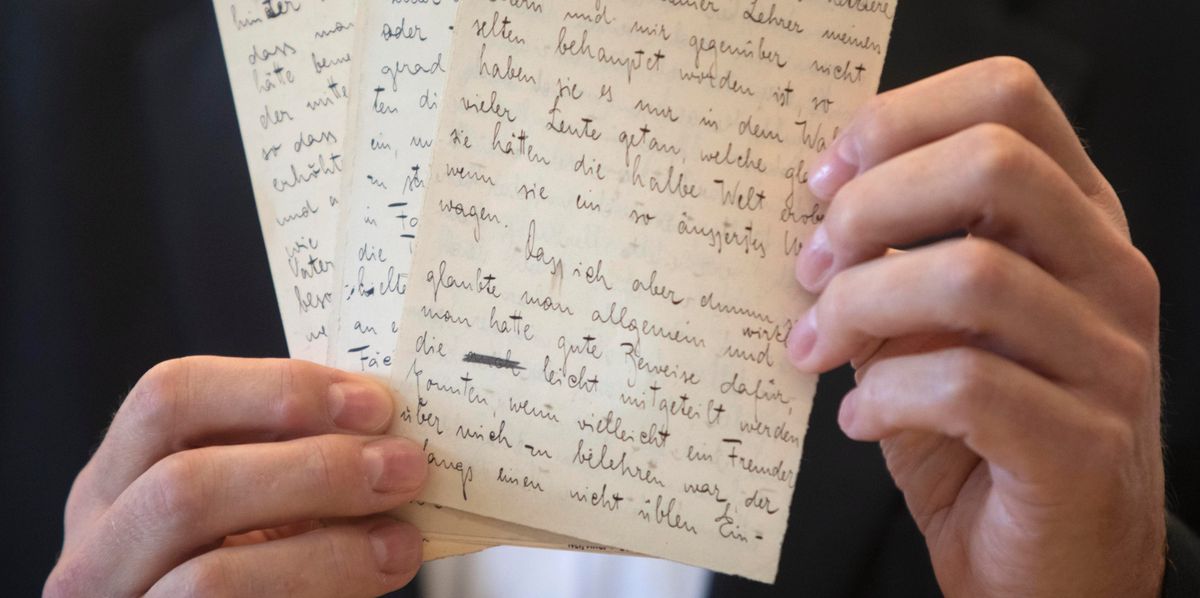 hinter
dass man
hätte beme
der mitte
so dass
erhöht
und a
wie
Vater
beso
we
oder
gerad
ten di
ein, un
in
in Fa
die
hielte
an e
Fäc
einer Lehrer meinen
ern und mir gegenüber nicht
selten behauptet worden ist, so
haben sie es nur in dem Wa
vieler Leute getan, welche gla
sie hätten die halbe Welt erobe
wenn sie ein so äusserstes U
wagen.
Dass ich aber dumm s
glaubte man allgemein und wirkl
man hatte gute Beweise dafür,
die leicht mitgeteilt werden
konnten, wenn vielleicht ein Fremder
über mich zu belehren war, der
fangs einen nicht üblen Ein-